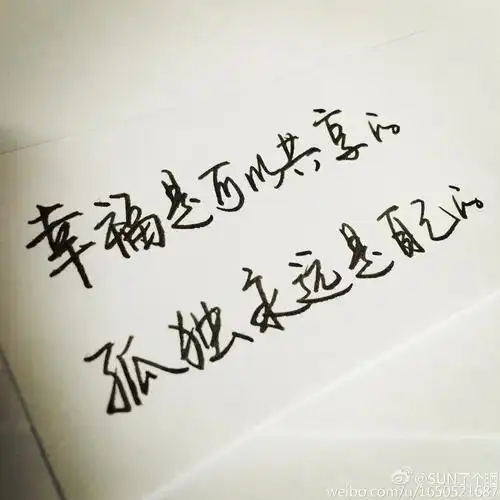 幸福是可以共享的
孤独永远是自己的
@SUN了个
weibo.com/u/1650521687